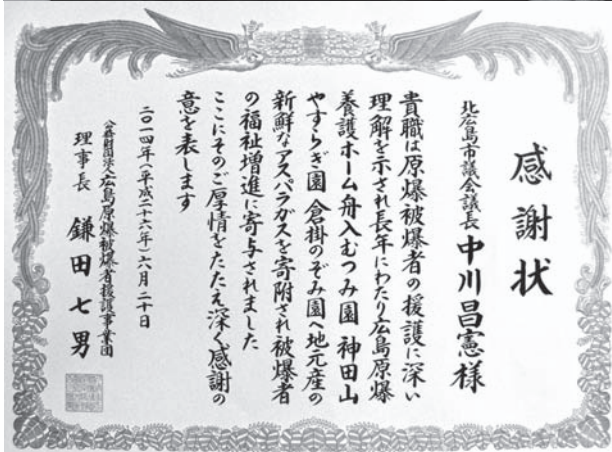 感謝状
北広島市議会議長 中川昌憲様
貴職は原爆被爆者の援護に深い
理解を示され長年にわたり広島原爆
養護ホーム舟入むつみ園 神田山
やすらぎ園 倉掛のぞみ園へ地元産の
新鮮なアスパラガスを寄附され被爆者
の福祉増進に寄与されました
ここにそのご厚情をたたえ深く感謝の
意を表します
二〇一四年(平成二十六年)六月二十日
公益財団法人広島原爆被爆者援護事業団
理事長 鎌田七男